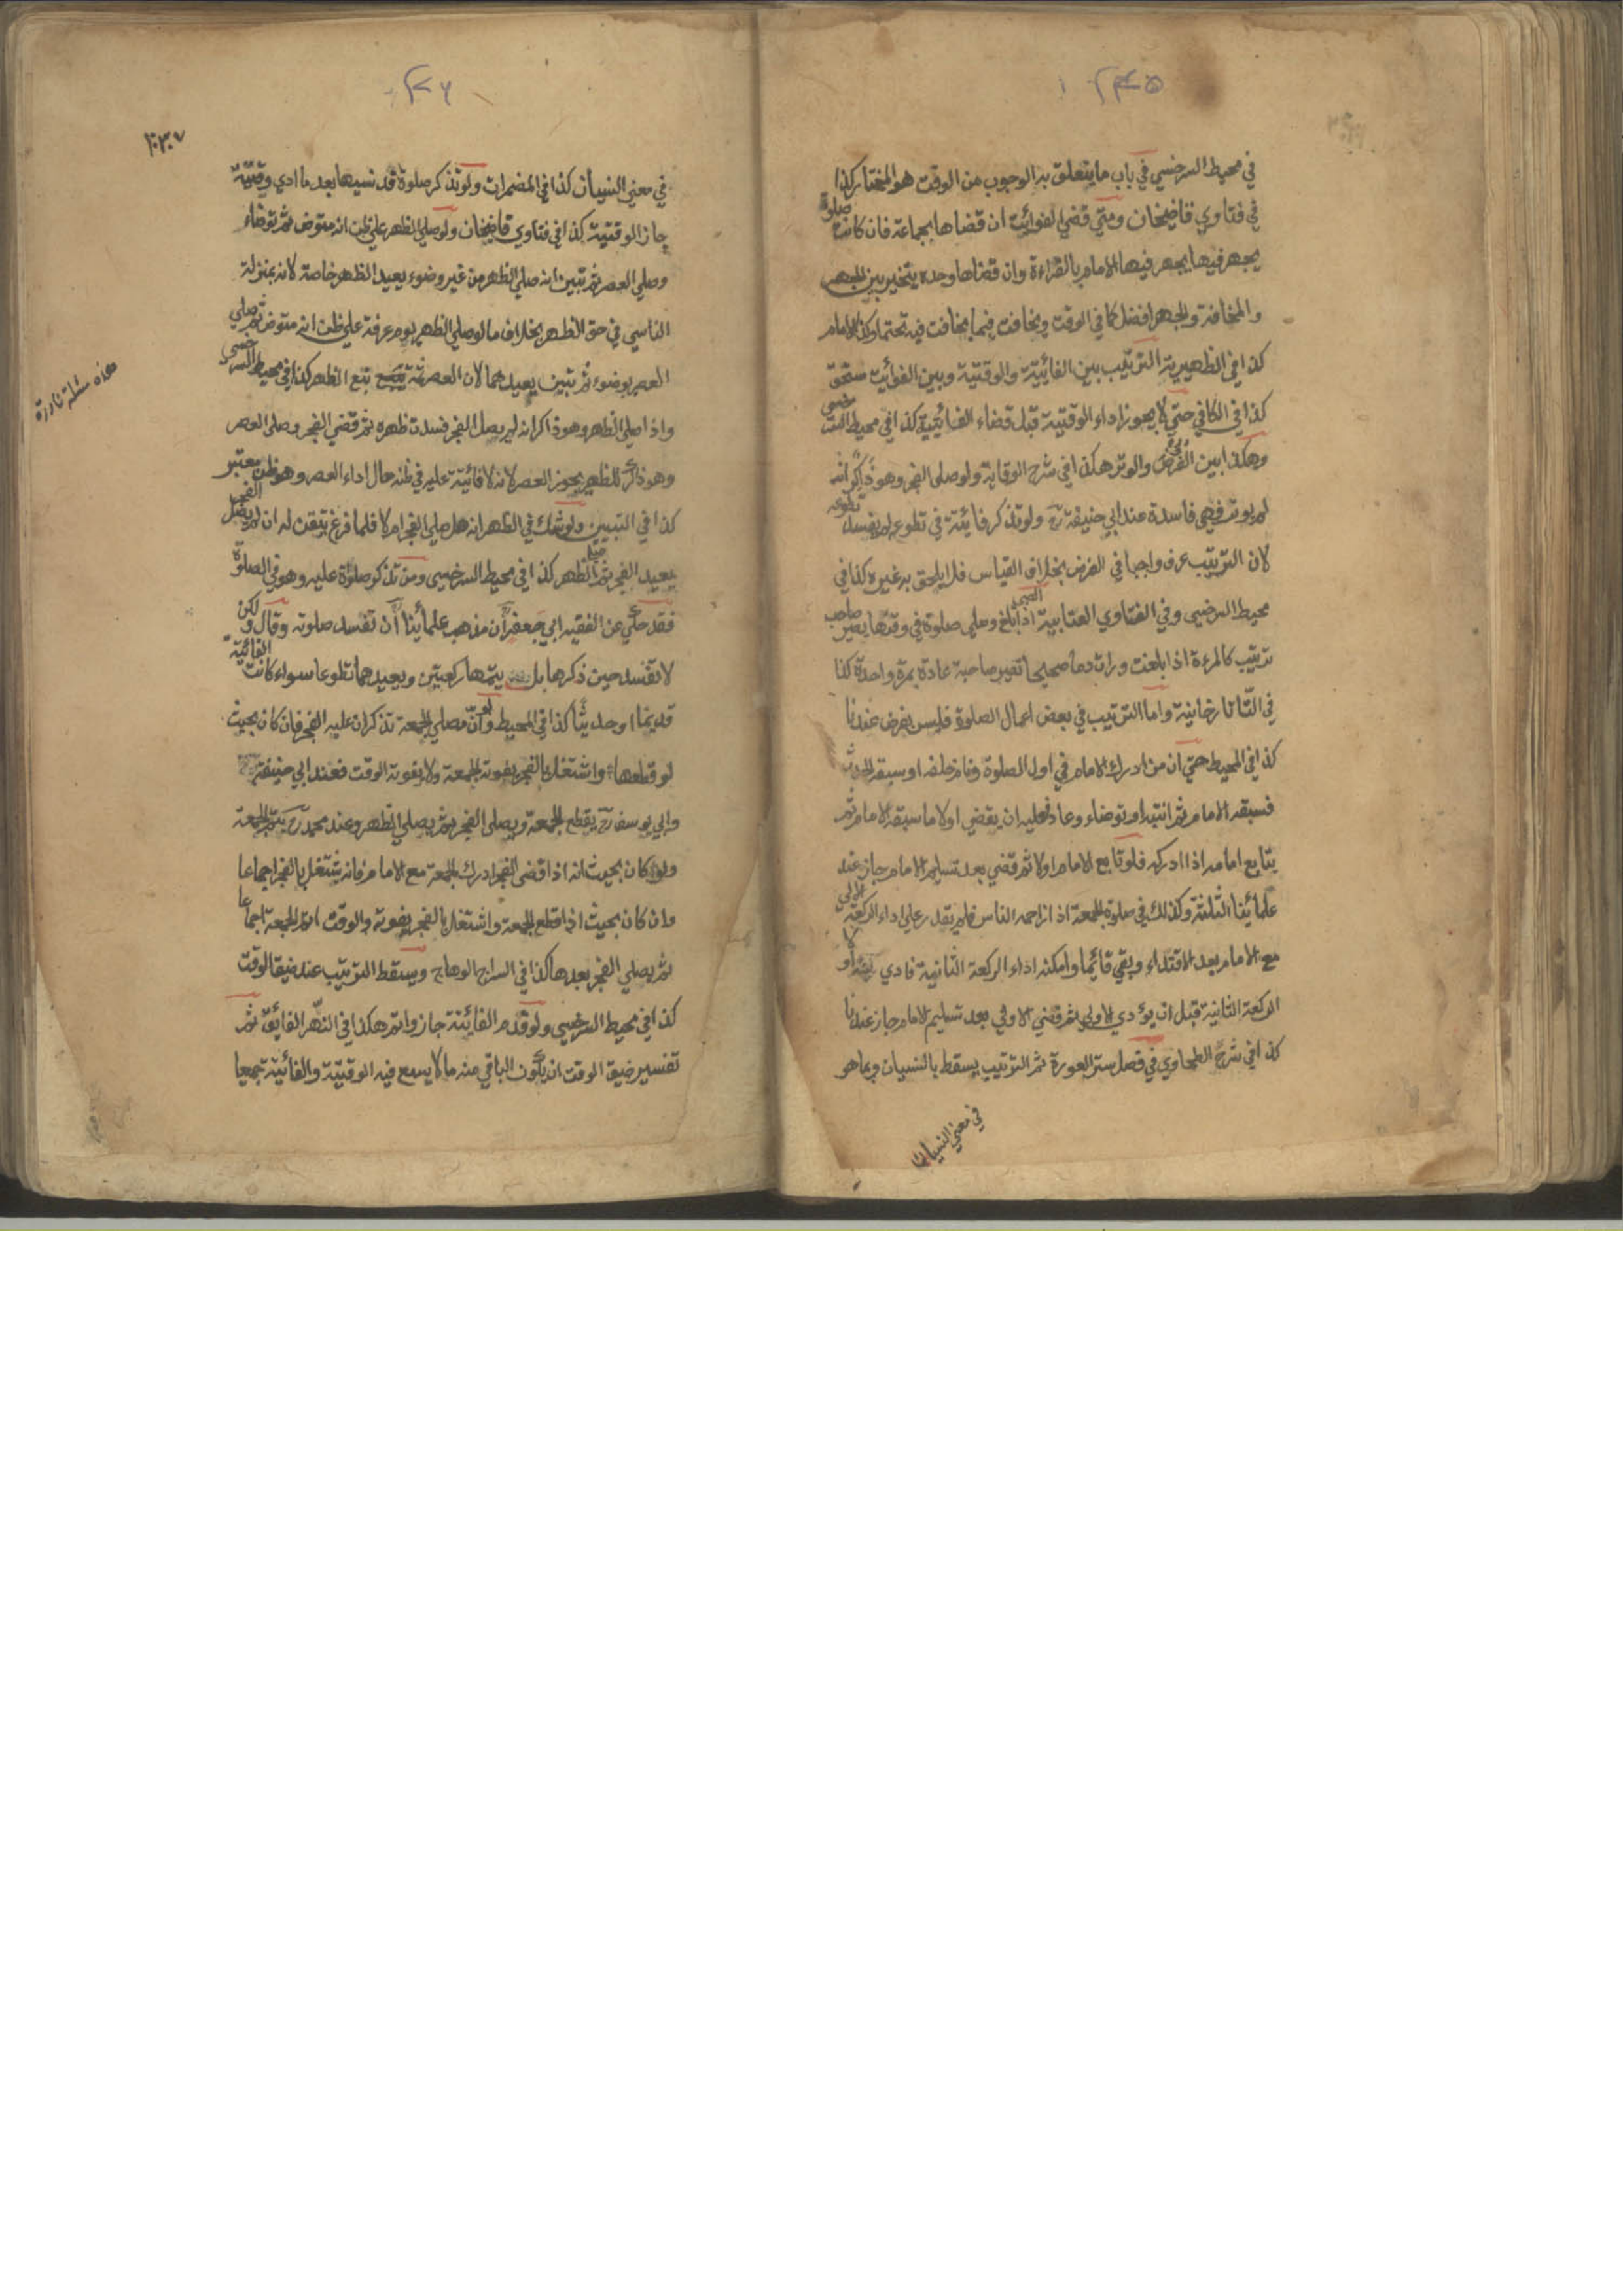 ٢٤٥
في محيط السرخسي في باب ما يتعلق به الوجوب من الوقت هو المختار كذا
في فتاوي قاضيخان ومتي قضي الفوائت ان قضاها بجماعة فان كانت صلوة
يجهر فيها يجهر فيها الامام بالقراءة وان قضاها وحده يتخير بين الجهر
والمخافتة والجهر افضل كما في الوقت ويخافت فيما يخافت فيه تحتما وكذا الامام
كذا في الظهيرية الترتيب بين الفائتة والوقتية وبين الفوائت مستحق
كذا في الكافي حتي لا يجوز اداء الوقتية قبل قضاء الفائتة كذا في محيط السرخسي
وهكذا بين الفرض والوتر هكذا في شرح الوقاية ولو صلى الفجر وهو ذاكر انه
لم يوتر فهي فاسدة عند ابي حنيفة رح ولو تذكر فائتة في تطوعه لم يفسد تطوعه
لان الترتيب عرف واجبا في الفرض بخلاف القياس فلا يلحق به غيره كذا في
محيط السرخسي وفي الفتاوي العتابية الصبي اذا بلغ وصلى صلوة في وقتها يصير صاحب
ترتيب كالمرءة اذا بلغت ورات دما صحيحا تصير صاحبة عادة بمرة واحدة كذا
في التاتارخانية واما الترتيب في بعض اعمال الصلوة فليس بفرض عندنا
كذا في المحيط حتي ان من ادرك الامام في اول الصلوة ونام خلفه او سبقه الحدث
فسبقه الامام ثم انتبه او توضاء وعاد فعليه ان يقضي اولا ما سبقه الامام ثم
يتابع امامه اذا ادركه فلو تابع الامام اولا ثم قضي بعد تسليم الامام جاز عند
علمائنا الثلثة وكذلك في صلوة الجمعة اذا زاحمه الناس فلم يقدر علي اداء الركعة الاولي
مع الامام بعد الاقتداء وبقي قائما وامكنه اداء الركعة الثانية فادي اولا
الركعة الثانية قبل ان يؤدي الاولي ثم قضي الاولي بعد تسليم الامام جاز عندنا
كذا في شرح الطحاوي في فصل ستر العورة ثم الترتيب يسقط بالنسيان وبما هو
في معني النسيان
٢٤٦
في معني النسيان كذا في المضمرات ولو تذكر صلوة قد نسيها بعد ما ادي وقتية
جاز الوقتية كذا في فتاوي قاضيخان ولو صلي الظهر علي ظن انه متوض ثم توضاء
وصلي العصر ثم تبين انه صلي الظهر من غير وضوء يعيد الظهر خاصة لانه بمنزلة
الناسي في حق الظهر بخلاف ما لو صلي الظهر يوم عرفة علي ظن انه متوض ثم صلي
العصر بوضوء ثم تبين يعيدهما لان العصر ثمة تبع الظهر كذا في محيط السرخسي
واذا صلي الظهر وهو ذاكر انه لم يصل الفجر فسدت ظهره ثم قضي الفجر وصلى العصر
وهو ذاكر للظهر يجوز العصر لانه لا فائتة عليه في ظنه حال اداء العصر وهو ظن معتبر
كذا في التبيين ولو شك في الظهر انه هل صلي الفجر ام لا فلما فرغ تيقن له ان لم يصل الفجر
يعيد الفجر ثم الظهر كذا في محيط السرخسي ومن تذكر صلوة عليه وهو في الصلوة
فقد حكي عن الفقيه ابي جعفر ان مذهب علمائنا ان تفسد صلوته وقال ولكن
لا تفسد حين ذكرها بل يتمها ركعتين ويعيدهما تطوعا سواء كانت الفائتة
قديما او حديثا كذا في المحيط ولو ان مصلي الجمعة تذكر ان عليه الفجر فان كان بحيث
لو قطعها واشتغل بالفجر يفوته الجمعة ولا يفوته الوقت فعند ابي حنيفة رح
وابي يوسف رح يقطع الجمعة ويصلي الفجر ثم يصلي الظهر وعند محمد رح يتم الجمعة
ولو كان بحيث انه اذا قضى الفجر ادرك الجمعة مع الامام فانه يشتغل بالفجر اجماعا
وان كان بحيث اذا قطع الجمعة واشتغل بالفجر يفوته والوقت اتم الجمعة اجماعا
ثم يصلي الفجر بعدها كذا في السراج الوهاج ويسقط الترتيب عند ضيق الوقت
كذا في محيط السرخسي ولو قدم الفائتة جاز واثم هكذا في النهر الفائق ثم
تفسير ضيق الوقت ان يكون الباقي منه ما لا يسع فيه الوقتية والفائتة جميعا
هذه مسئلة نادرة